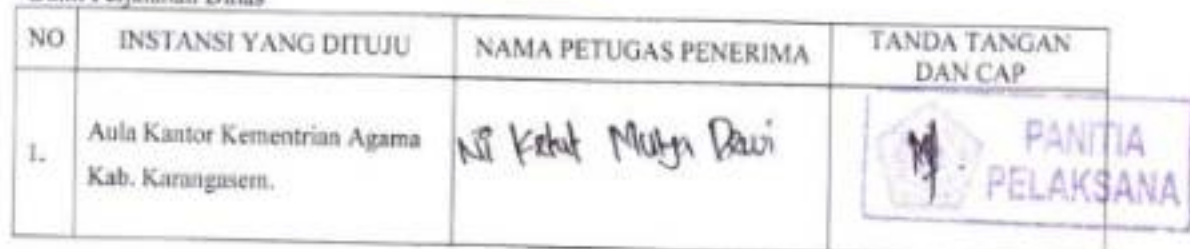 NO INSTANSI YANG DITUJU NAMA PETUGAS PENERIMA TANDA TANGAN DAN CAP
1. Aula Kantor Kementrian Agama Kab. Karangasem.
Ni Ketut
PANITIA
PELAKSANA